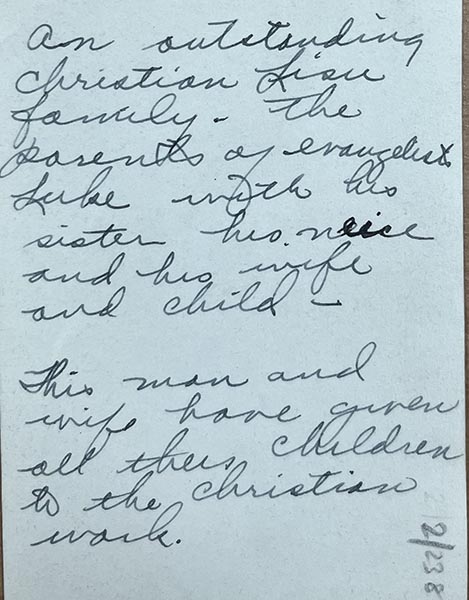 An outstanding
Christian Lisu
family - The
parents of evangelist
Luke with his
sister his neice
and his wife
and child -
This man and
wife have given
all their children
to the Christian
work.
2/238